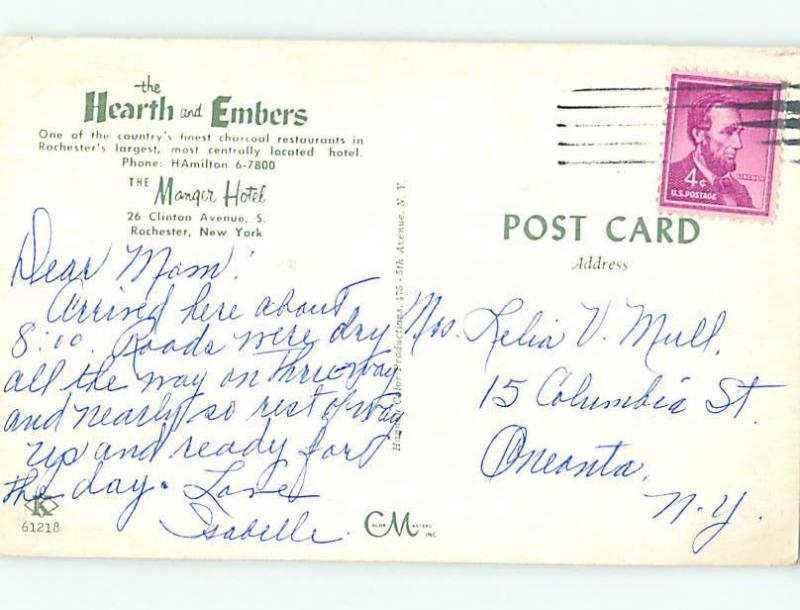 the
Hearth and Embers
One of the country's finest charcoal restaurants in
Rochester's largest, most centrally located hotel.
Phone: HAmilton 6-7800
THE Manger Hotel
26 Clinton Avenue, S.
Rochester, New York
Dear Mom!
Arrived here about
8:00. Roads were dry
all the way on Thruway
and nearly so rest of way
up and ready for
the day. Love
Isabelle.
K
61218
Color Productions, 475 - 5th Avenue, N. Y.
4¢
U.S. POSTAGE
LINCOLN
POST CARD
Address
Mrs. Lelia V. Mull,
15 Columbia St.
Oneonta,
N.Y.
COLOR MASTERS INC